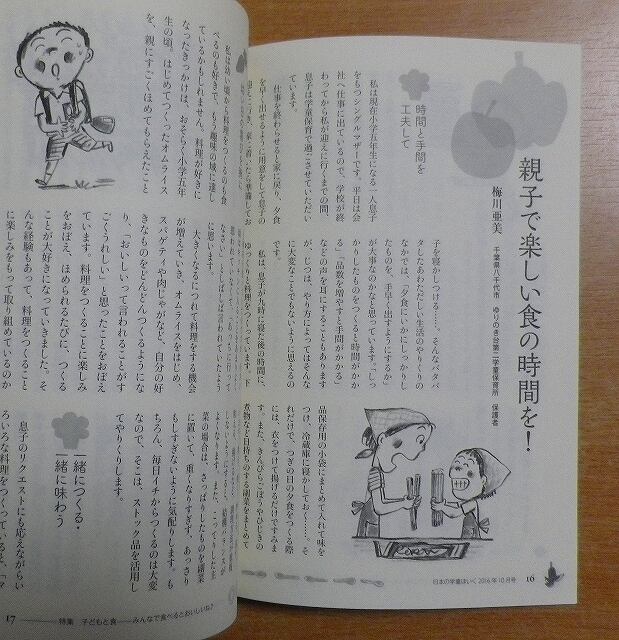 親子で楽しい食の時間を！
梅川亜美 千葉県八千代市 ゆりのき台第二学童保育所 保護者
時間と手間を
工夫して
私は現在小学五年生になる一人息子
をもつシングルマザーです。平日は会
社へ仕事に出ているので、学校が終
わってから私が迎えに行くまでの間、
息子は学童保育で過ごさせていただい
ています。
仕事を終わらせると家に戻り、夕食
を早く出せるように用意をして息子の
迎えに行き、家に着いたら準備してお
子を寝かしつける……、そんなバタバ
タしたあわただしい生活のやりくりの
なかでは、「夕食にいかにしっかりし
たものを、手早く出すようにするか」
が大事なのかなと思っています。「しっ
かりしたものをつくると時間がかか
る」「品数を増やすと手間がかかる」
などの声を耳にすることもあります
が、じつは、やり方によってはそんな
に大変なことでもないように思えるの
です。
私は、息子が九時に寝た後の時間に、
ゆっくりと料理をつくっています。下
品保存用の小袋にまとめて入れて味を
つけ、冷蔵庫に寝かしておく……。そ
れだけで、つぎの日の夕食をつくる際
には、衣をつけて揚げるだけですみま
す。また、きんぴらごぼうやひじきの
煮物など日持ちのする副菜をまとめて
日本の学童ほいく 2016年10月号
16
菜の場合は、さっぱりしたものを副菜
に置いて、重くなりすぎず、あっさり
もしすぎないように気配りします。も
ちろん、毎日イチからつくるのは大変
なので、そこは、ストック品を活用し
てやりくりします。
一緒につくる・
一緒に味わう
息子のリクエストにも応えながらい
ろいろな料理をつくっていると、「マ
私は幼い頃から料理をつくるのも食
べるのも好きで、もう趣味の域に達し
ているかもしれません。料理が好きに
なったきっかけは、おそらく小学五年
生の頃。はじめてつくったオムライス
を、親にすごくほめてもらえたこと
に思います。
大きくなるにつれて料理をする機会
が増えていき、オムライスをはじめ、
スパゲティや肉じゃがなど、自分の好
きなものをどんどんつくるようにな
り、「おいしいって言われることがす
ごくうれしい」と思ったことをおぼえ
ています。料理をつくることに楽しみ
をおぼえ、ほめられるたびに、つくる
ことが大好きになっていきました。そ
んな経験もあって、料理をつくること
に楽しみをもって取り組めているのか
17 特集 子どもと食――みんなで食べるとおいしいね♪